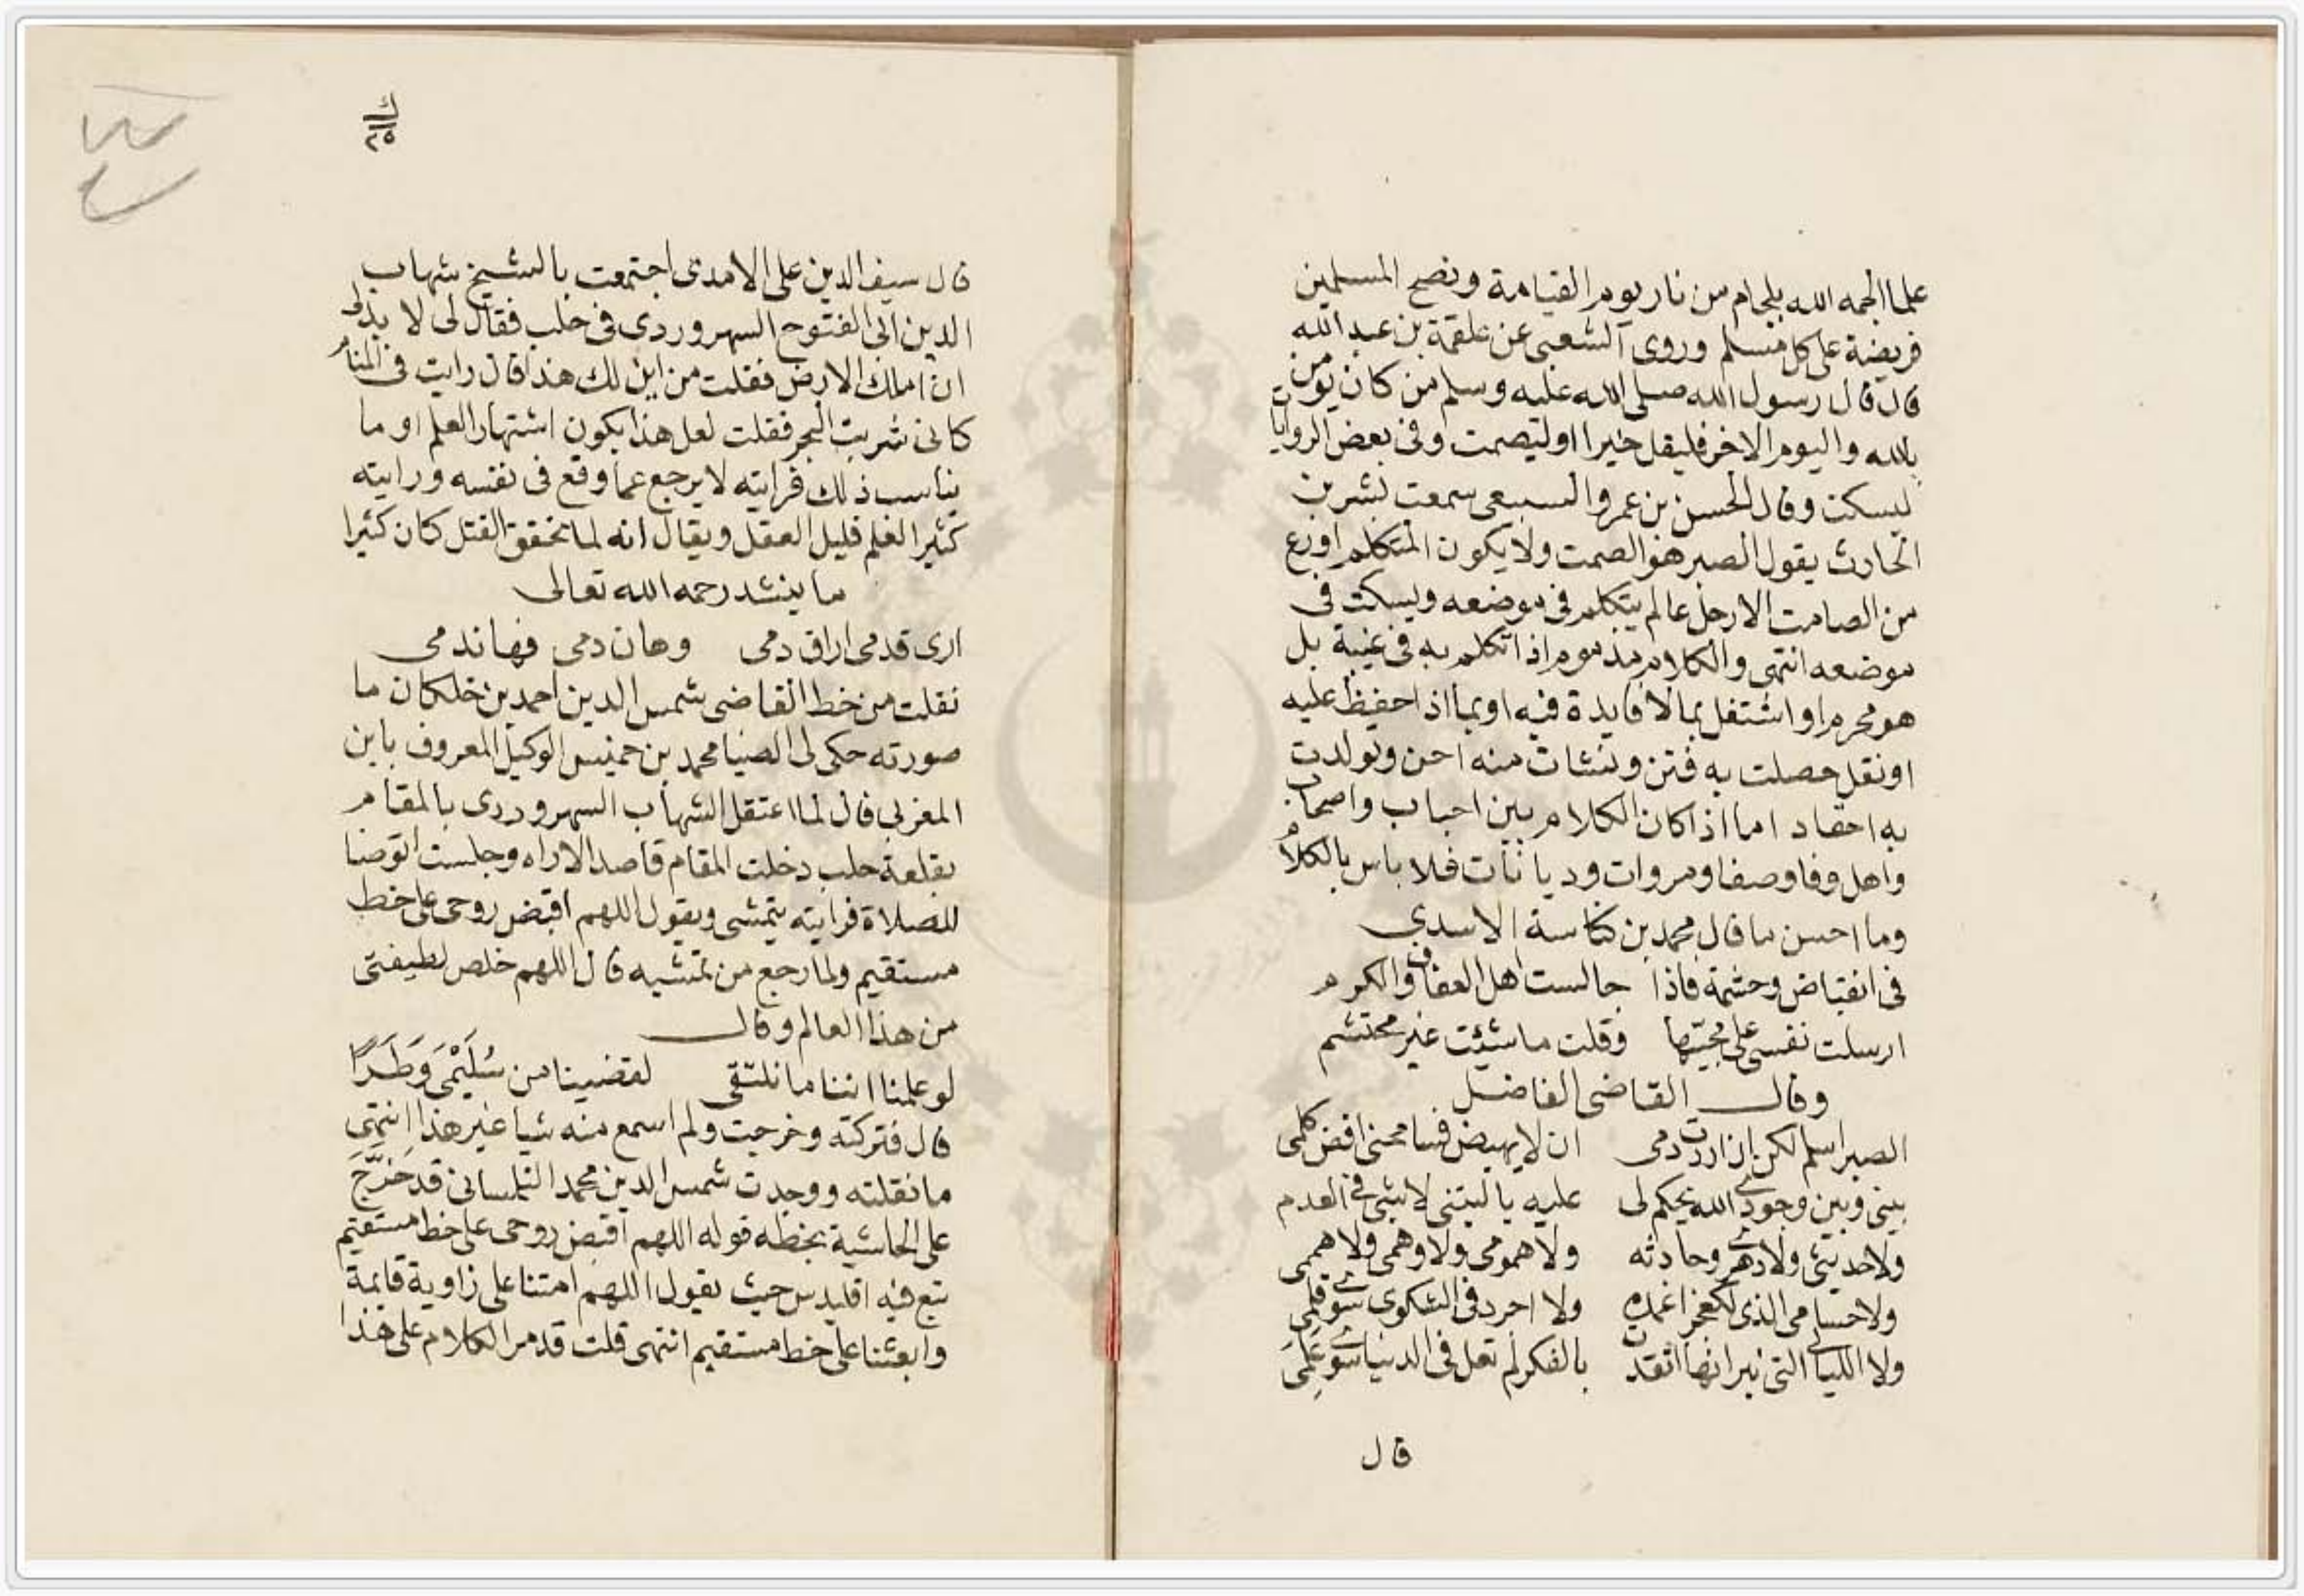 علما الجمه الله بلجام من نار يوم القيامة ونصح المسلمين
فريضة على كل مسلم وروى الشعبى عن علقمة بن عبد الله
قال قال رسول الله صلى الله عليه وسلم من كان يومن
بالله واليوم الاخر فليقل خيرا او ليصمت وفى بعض الروايات
ليسكت وقال الحسن بن عمرو السبيعى سمعت بشر بن
الحارث يقول الصبر هو الصمت ولا يكون المتكلم اورع
من الصامت الا رجل عالم يتكلم فى موضعه ويسكت فى
موضعه انتهى والكلام مذموم اذا تكلم به فى غيبة بل
هو محرم او اشتغل بما لا فايدة فيه او بما اذا حفيظ عليه
او نقل حصلت به فتن ونشات منه احن وتولدت
به احقاد اما اذا كان الكلام بين احباب واصحاب
واهل وفا وصفا ومروات وديانات فلا باس بالكلام
وما احسن ما قال محمد بن كناسة الاسدي
فى انقباض وحشمة فاذا جالست اهل العفاف والكرم
ارسلت نفسى على محبتها وقلت ما شئت غير محتشم
وقال القاضى الفاضل
الصبر اسلم لكن ان اردت دمى ان لا يهيض فسامحنى افض كلمى
بينى وبين وجودي الله يحكم لى عليه يا ليتنى لا شى فى العدم
ولا حديثى ولا دهرى وحادثه ولا همومى ولا وهمى ولا هممى
ولا حسامى الذى لكعجز اغمده ولا احرد فى الشكوى سوى قلمى
ولا الليالى التى نيرانها اتقدت بالفكر لم تعل فى الدنيا سوى علمى
قال
ك
٢٥
قال سيف الدين على الامدى اجتمعت بالشيخ شهاب
الدين ابى الفتوح السهروردى فى حلب فقال لى لا بد لى
ان املك الارض فقلت من اين لك هذا قال رايت فى المنام
كانى شربت البحر فقلت لعل هذا يكون اشتهار العلم او ما
يناسب ذلك فرايته لا يرجع عما وقع فى نفسه ورايته
كثير العلم قليل العقل ويقال انه لما تحقق القتل كان كثيرا
ما ينشد رحمه الله تعالى
ارى قدمى اراق دمى وهان دمى فها ندمى
نقلت من خط القاضى شمس الدين احمد بن خلكان ما
صورته حكى لى الضيا محمد بن حنيس الوكيل المعروف بابن
المغربى قال لما اعتقل الشهاب السهروردى بالمقام
بقلعة حلب دخلت المقام قاصدا لاراه وجلست اتوضا
للصلاة فرايته يتمشى ويقول اللهم اقبض روحى على خط
مستقيم ولما رجع من تمشيه قال اللهم خلص لطيفتى
من هذا العالم وقال
لو علمنا اننا ما نلتقى لقضينا من سُلَيْمَى وَطَرًا
قال فتركته وخرجت ولم اسمع منه شيا غير هذا انتهى
ما نقلته ووجدت شمس الدين محمد التلمسانى قد خَرَّجَ
على الحاشية بخطه قوله اللهم اقبض روحى على خط مستقيم
تبع فيه اقليدس حيث يقول اللهم امتنا على زاوية قايمة
وابعثنا على خط مستقيم انتهى قلت قد مر الكلام على هذا